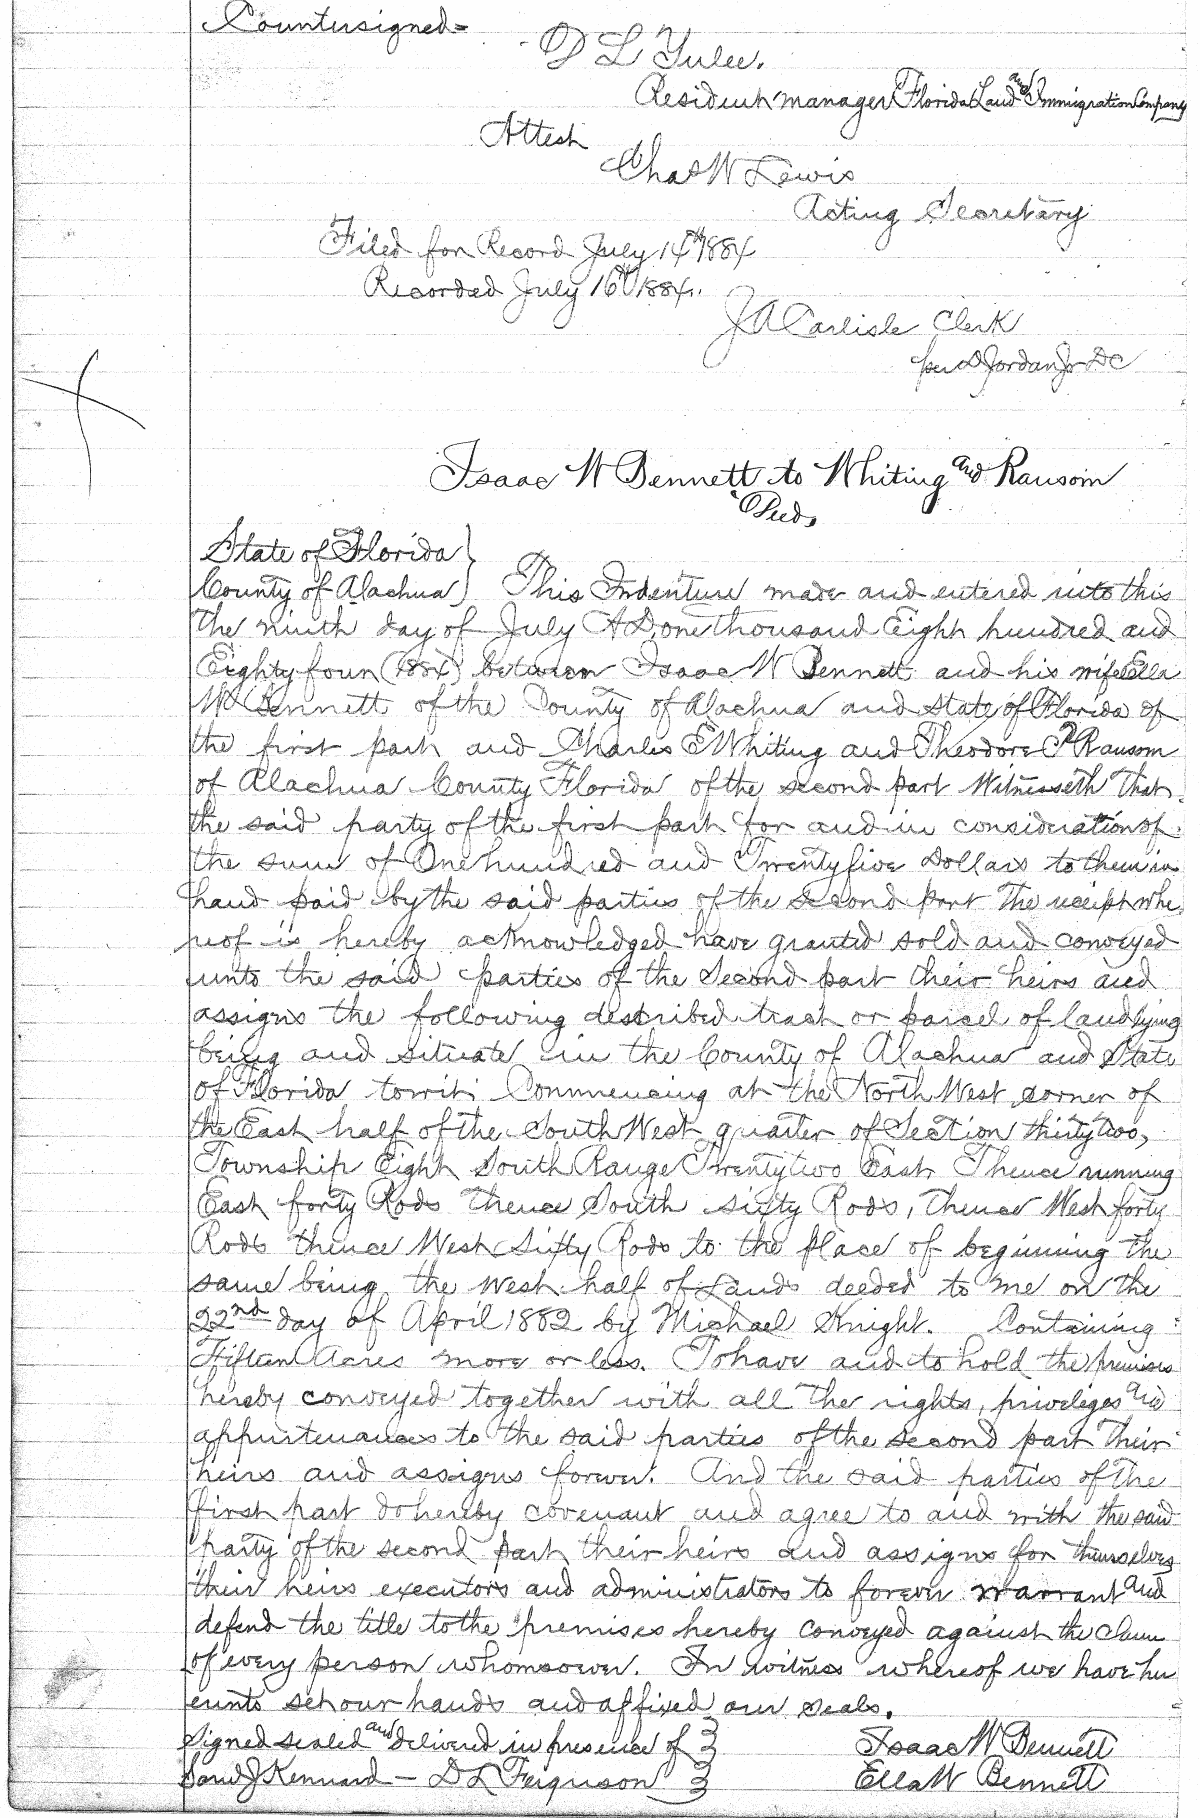 Countersigned=
D L Yulee.
Resident manager Florida Land and Immigration Company
Attest
Chas W Lewis
Acting Secretary
Filed for Record July 14th 1884
Recorded July 16th 1884.
J A Carlisle Clerk
per D Jordan Jr DC
Isaac W Bennett to Whiting and Ransom
Deed.
State of Florida
County of Alachua } This Indenture made and entered into this
the ninth day of July A.D. one thousand Eight hundred and
Eighty four (1884) between Isaac W Bennett and his wife Ella
W Bennett of the County of Alachua and State of Florida of
the first part and Charles E Whiting and Theodore Ransom
of Alachua County Florida of the second part Witnesseth That
the said party of the first part for and in consideration of
the sum of One hundred and Twenty five Dollars to them in
hand paid by the said parties of the second part The receipt whe
reof is hereby acknowledged have granted sold and conveyed
unto the said parties of the Second part their heirs and
assigns the following described tract or parcel of land lying
being and situate in the County of Alachua and State
of Florida towrit Commencing at the North West corner of
the East half of the South West quarter of Section thirty two,
Township Eight South Range Twenty two East Thence running
East forty Rods thence South sixty Rods, thence West forty
Rods thence West Sixty Rods to the place of beginning the
same being the west half of Lands deeded to me on the
22nd day of April 1882 by Michael Knight. Containing
Fifteen Acres more or less. To have and to hold the premises
hereby conveyed together with all the rights, priveleges and
appurtenances to the said parties of the second part their
heirs and assigns forever. And the said parties of the
first part do hereby covenant and agree to and with the said
party of the second part their heirs and assigns for themselves
their heirs executors and administrators to forever warrant and
defend the title to the premises hereby conveyed against the claim
of every person whomsoever. In witness whereof we have her
eunto set our hands and affixed our seals.
Signed sealed and delivered in presence of } Isaac W Bennett
Saml J Kennard – D L Ferguson } Ella W Bennett